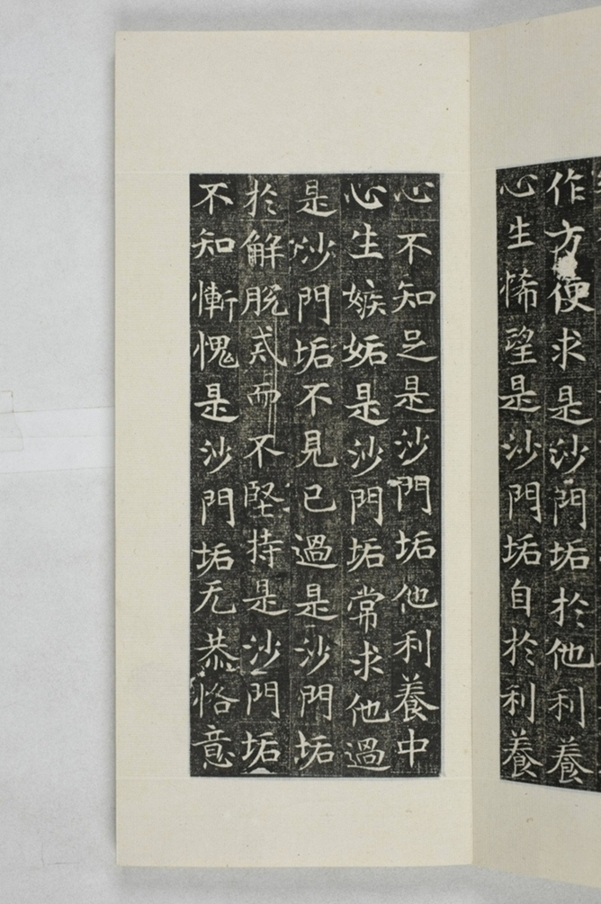 作方便求是沙門垢於他利養
心生悕望是沙門垢自於利養
心不知足是沙門垢他利養中
心生嫉妬是沙門垢常求他過
是沙門垢不見己過是沙門垢
於解脫戒而不堅持是沙門垢
不知慚愧是沙門垢无恭恪意